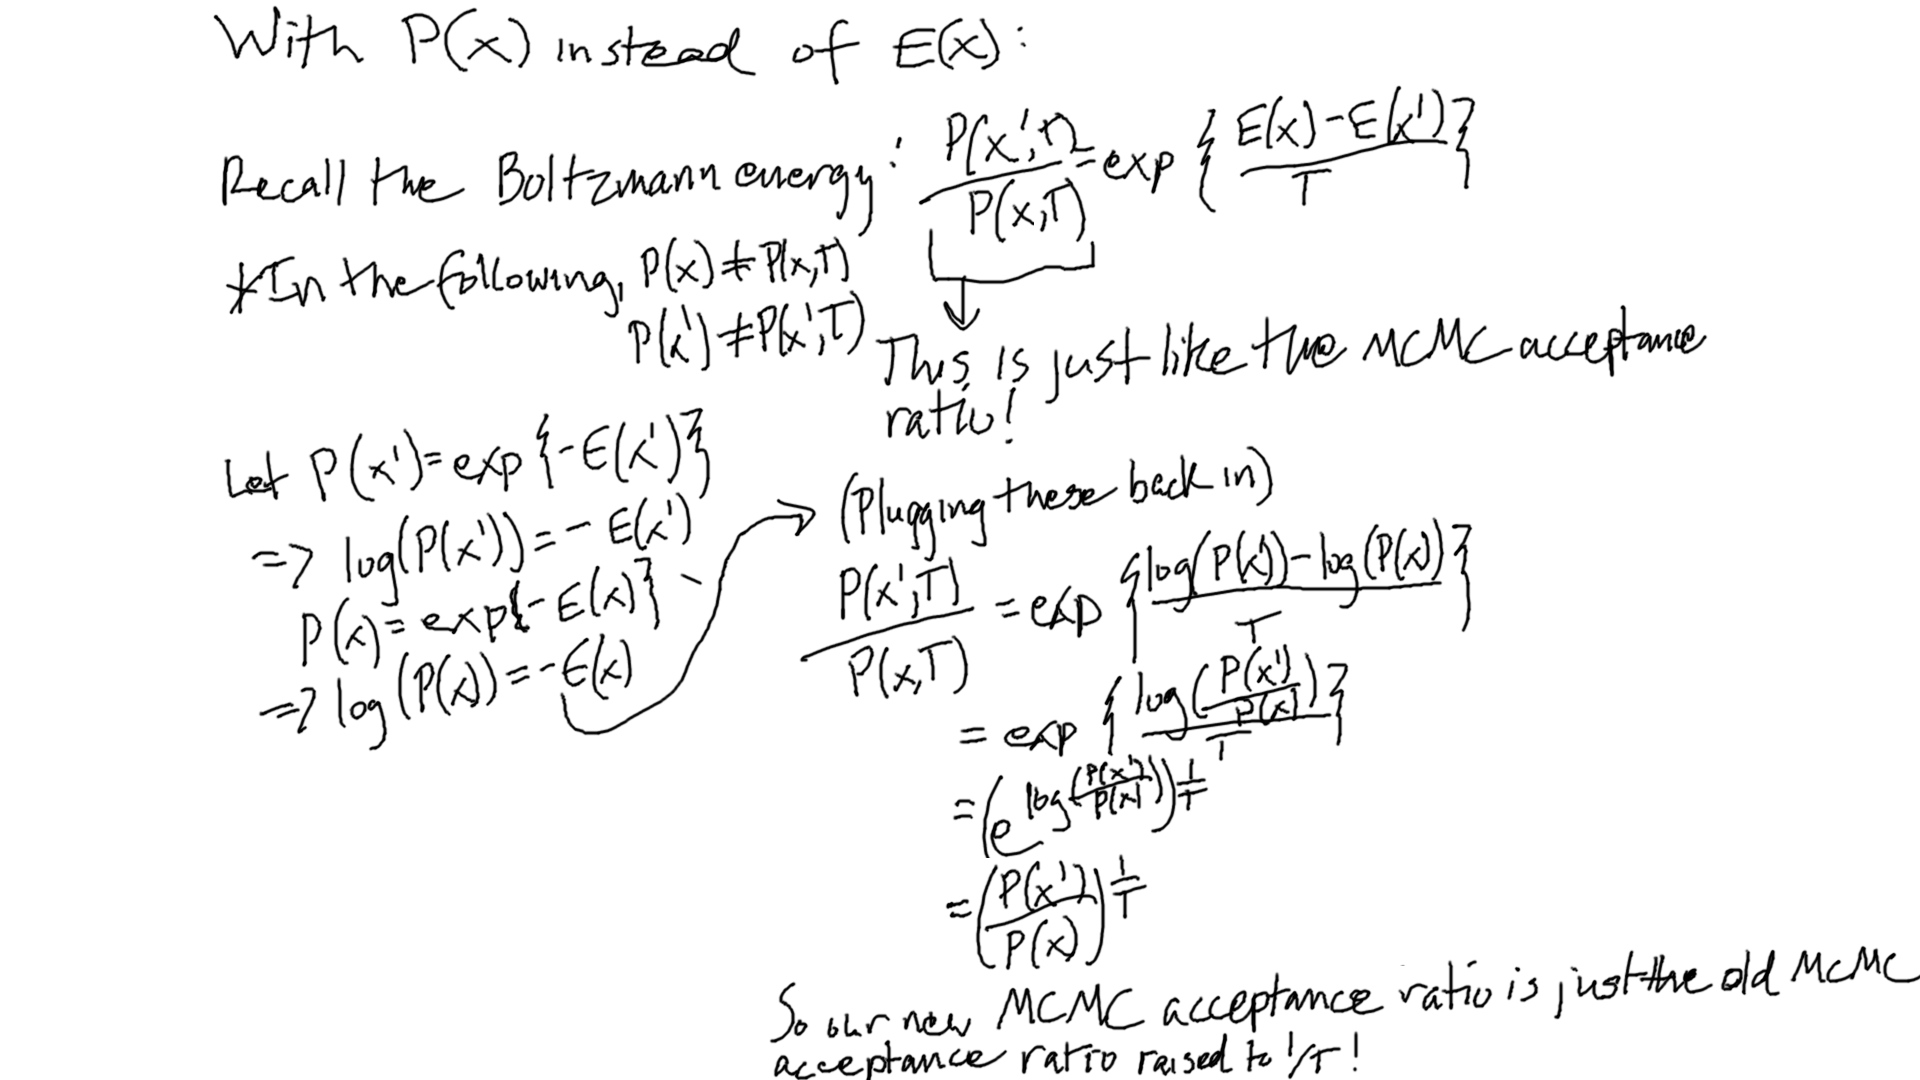 With P(x) instead of E(x):
Recall the Boltzmann energy: P(x',T)/P(x,T) = exp { (E(x) - E(x'))/T }
*In the following, P(x) ≠ P(x,T)
P(x') ≠ P(x',T)
This is just like the MCMC acceptance
ratio!
Let P(x') = exp {-E(x')}
=> log(P(x')) = - E(x')
P(x) = exp{-E(x)}
=> log(P(x)) = -E(x)
(Plugging these back in)
P(x',T)/P(x,T) = exp { (log(P(x')) - log(P(x)))/T }
= exp { log(P(x')/P(x))/T }
= (e^log(P(x')/P(x)))^1/T
= (P(x')/P(x))^1/T
So our new MCMC acceptance ratio is just the old MCMC
acceptance ratio raised to 1/T!